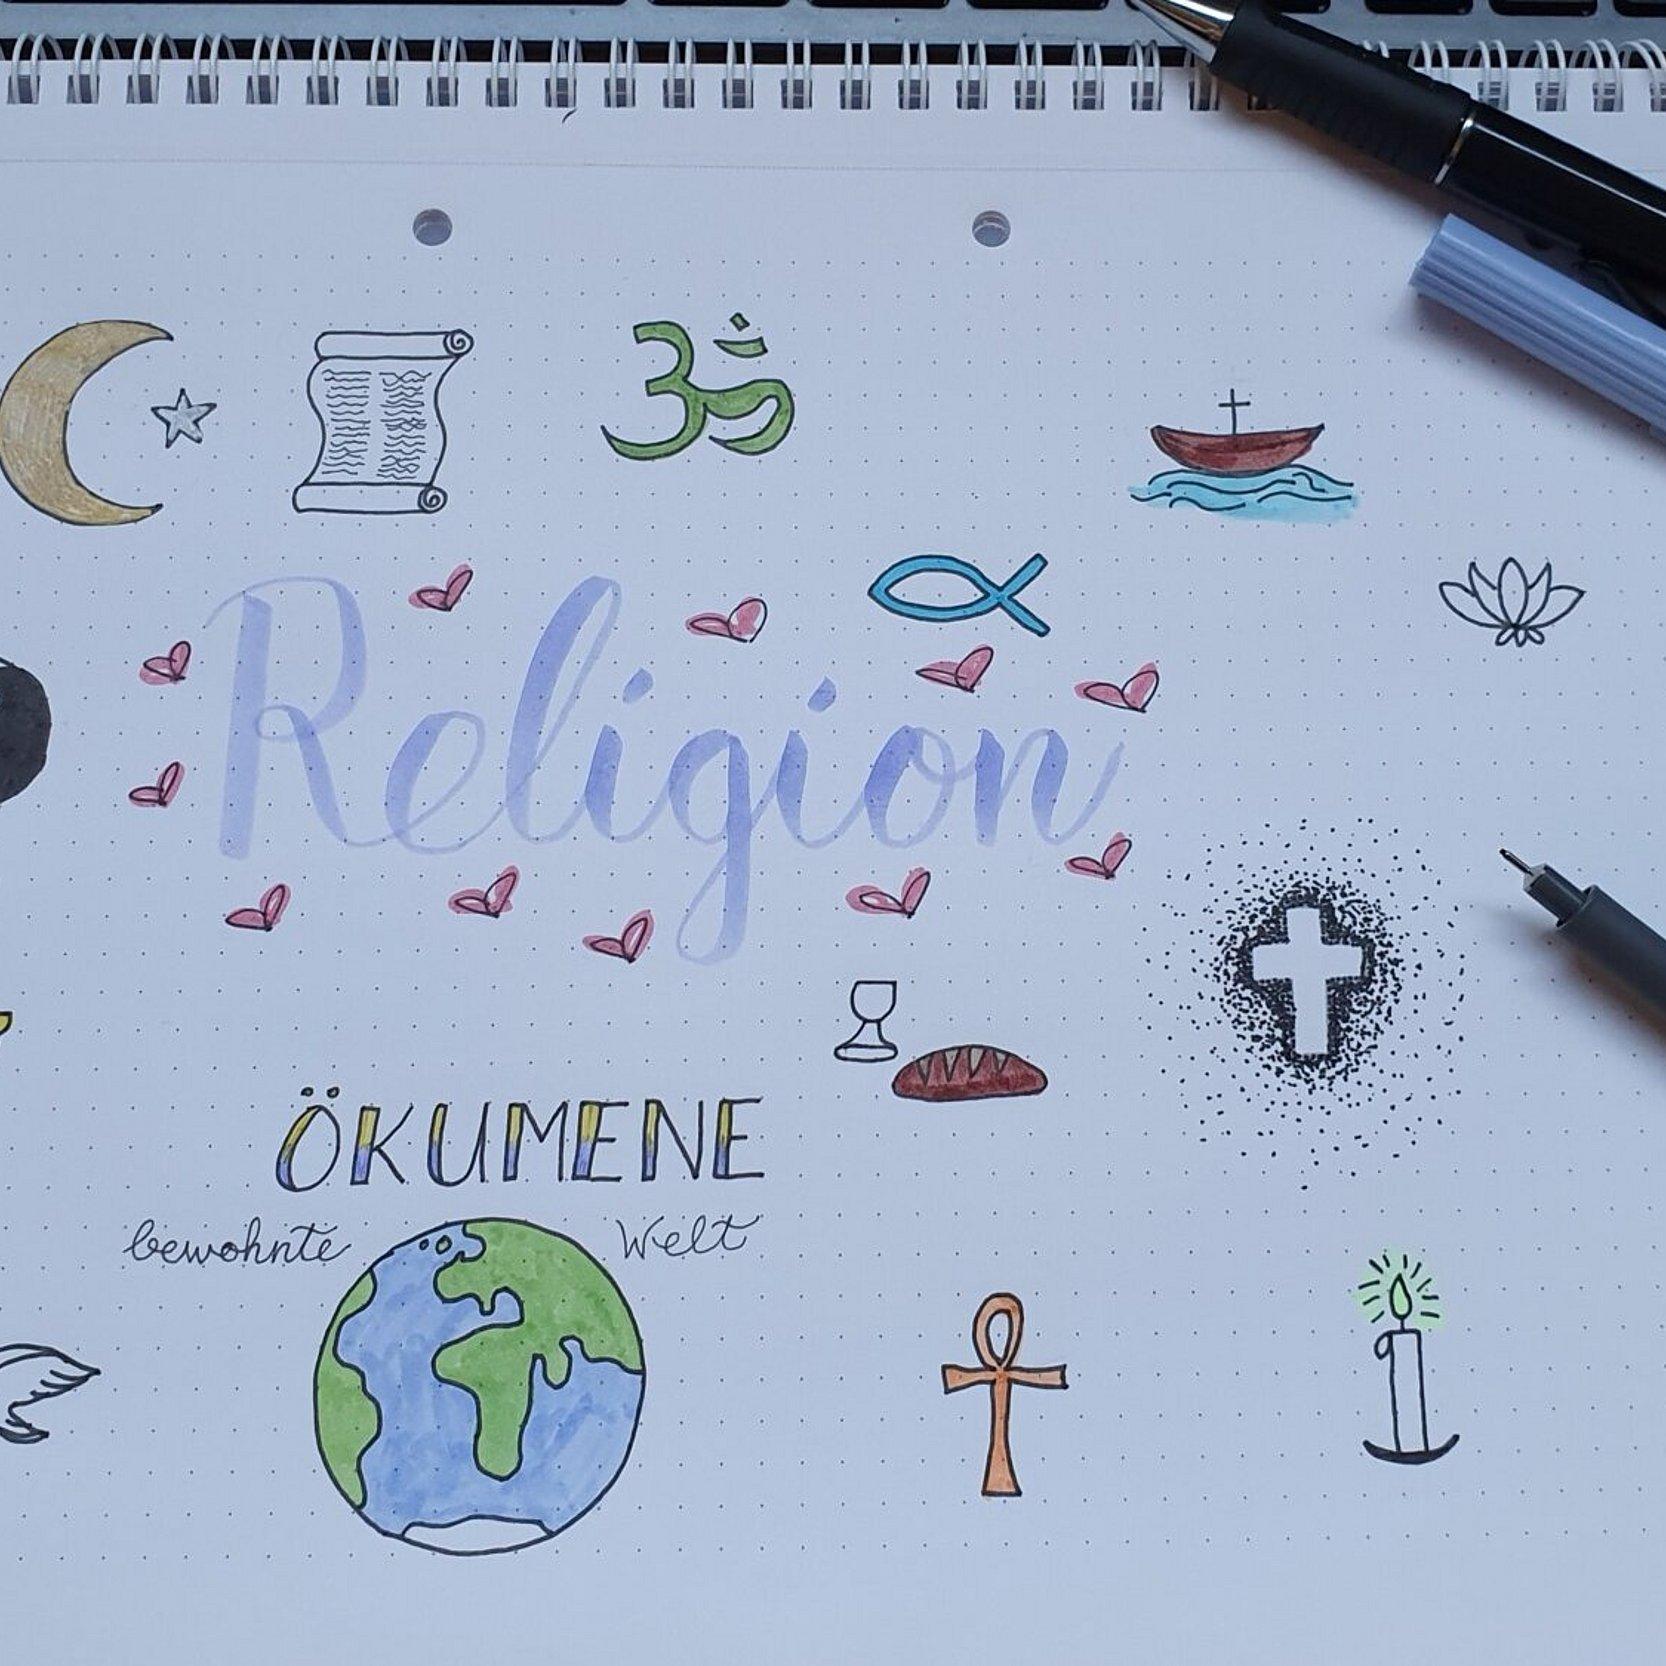 Religion
ÖKUMENE
bewohnte Welt